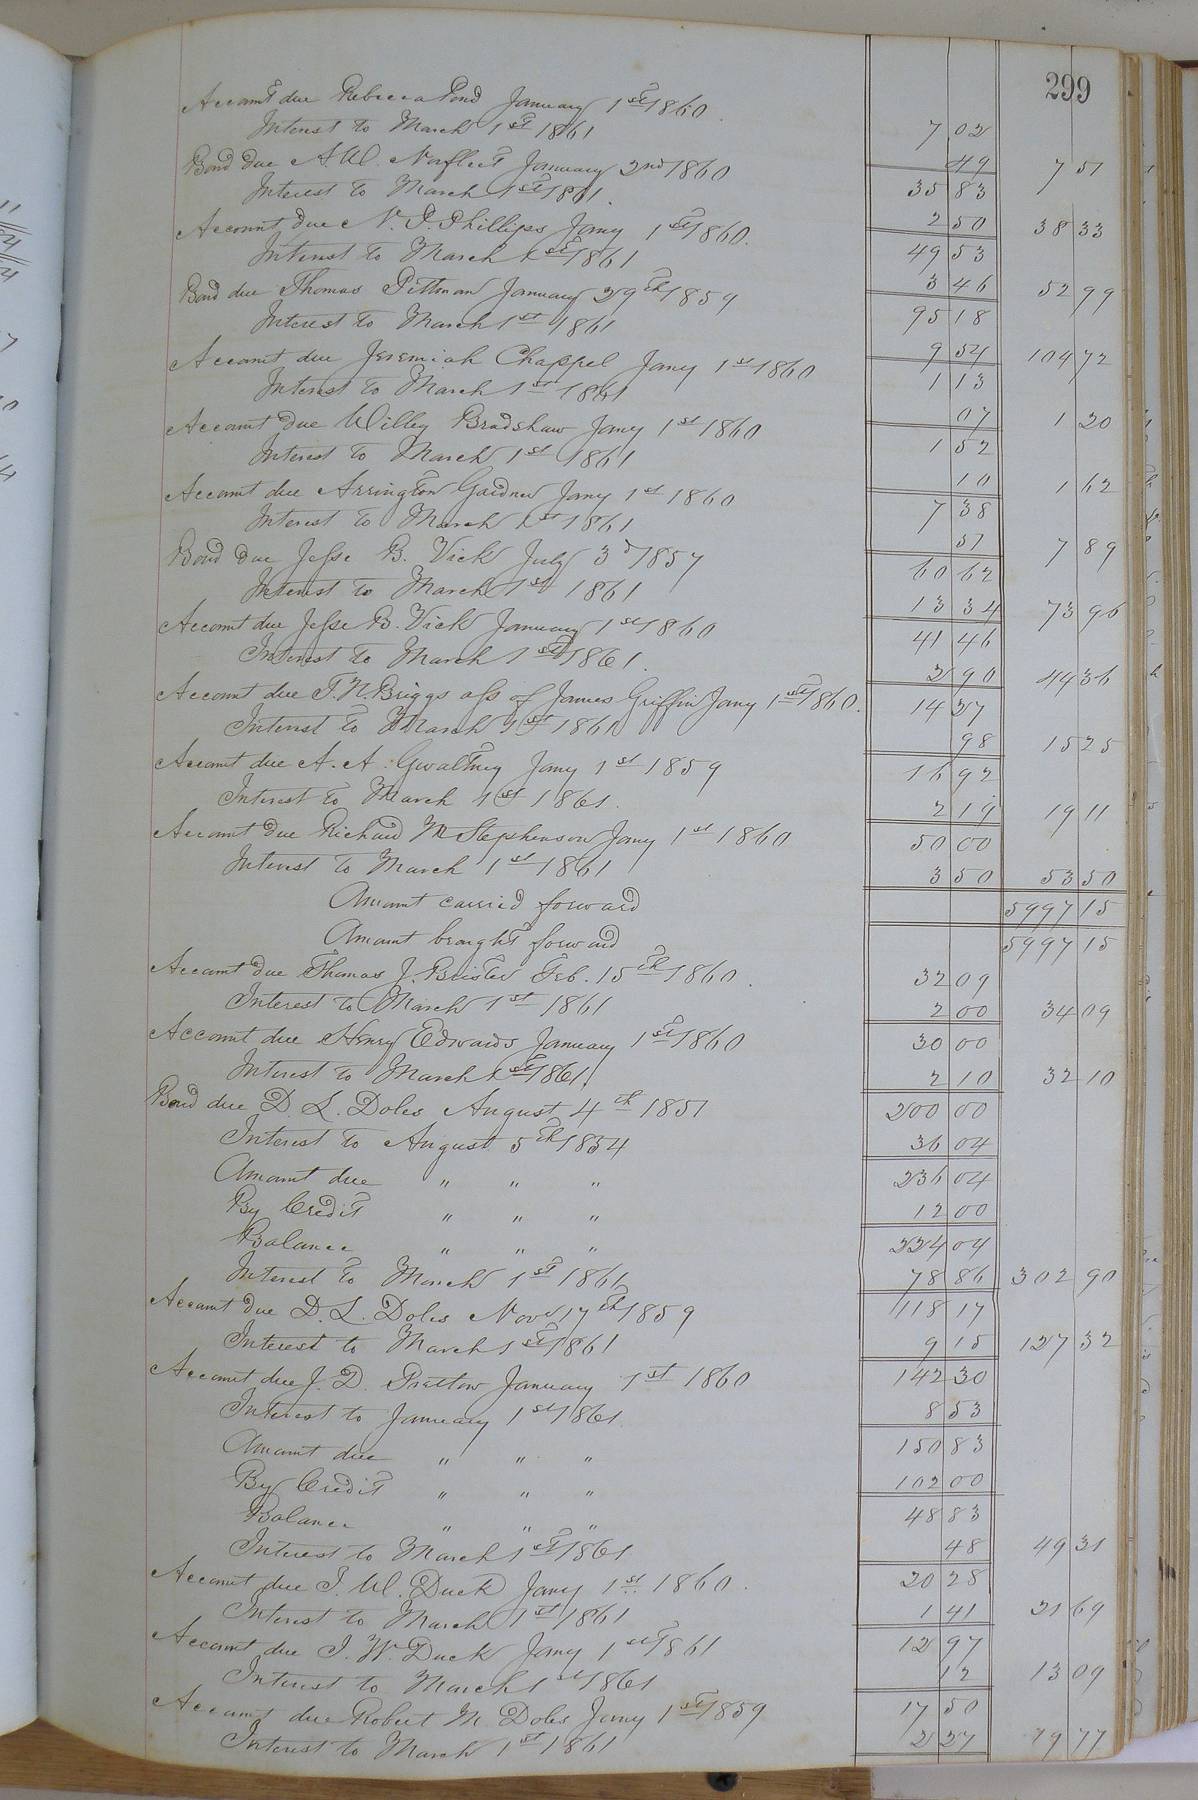 299
Account due Rebecca Pond January 1st 1860 7 02
Interest to March 1st 1861 49 7 51
Bond due A. W. Norfleet January 2nd 1860 35 83
Interest to March 1st 1861. 2 50 38 33
Account due N. P. Phillips Jany 1st 1860. 49 53
Interest to March 1st 1861 3 46 52 99
Bond due Thomas Pittman January 29th 1859 95 18
Interest to March 1st 1861 9 54 104 72
Account due Jeremiah Chappel Jany 1st 1860 1 13
Interest to March 1st 1861 07 1 20
Account due Willey Bradshaw Jany 1st 1860 1 52
Interest to March 1st 1861 10 1 62
Account due Arrington Gardner Jany 1st 1860 7 38
Interest to March 1st 1861 51 7 89
Bond due Jesse B. Vick July 3d 1857 60 62
Interest to March 1st 1861 13 34 73 96
Account due Jesse B. Vick January 1st 1860 41 46
Interest to March 1st 1861. 2 90 44 36
Account due T. N. Briggs ass of James Griffin Jany 1st 1860. 14 27
Interest to March 1st 1861 98 15 25
Account due A. A. Gwaltney Jany 1st 1859 16 92
Interest to March 1st 1861. 2 19 19 11
Account due Richard M Stephenson Jany 1st 1860 50 00
Interest to March 1st 1861 3 50 53 50
Amount carried forward 5997 15
Amount brought forward 5997 15
Account due Thomas J. Brister Feb. 15th 1860. 32 09
Interest to March 1st 1861 2 00 34 09
Account due Henry Edwards January 1st 1860 30 00
Interest to March 1st 1861. 2 10 32 10
Bond due D. L. Doles August 4th 1851 200 00
Interest to August 5th 1854 36 04
Amount due " " " 236 04
By Credit " " " 12 00
Balance " " " 224 04
Interest to March 1st 1861 78 86 302 90
Account due D. L. Doles Novr 17th 1859 118 17
Interest to March 1st 1861 9 15 127 32
Account due J. D. Pretlow January 1st 1860 142 30
Interest to January 1st 1861 8 53
Amount due " " " 150 83
By Credit " " " 102 00
Balance " " " 48 83
Interest to March 1st 1861 48 49 31
Account due J. W. Duck Jany 1st 1860. 20 28
Interest to March 1st 1861 1 41 21 69
Account due J. W. Duck Jany 1st 1861 12 97
Interest to March 1st 1861 12 13 09
Account due Robert M. Doles Jany 1st 1859 17 50
Interest to March 1st 1861 2 27 19 77